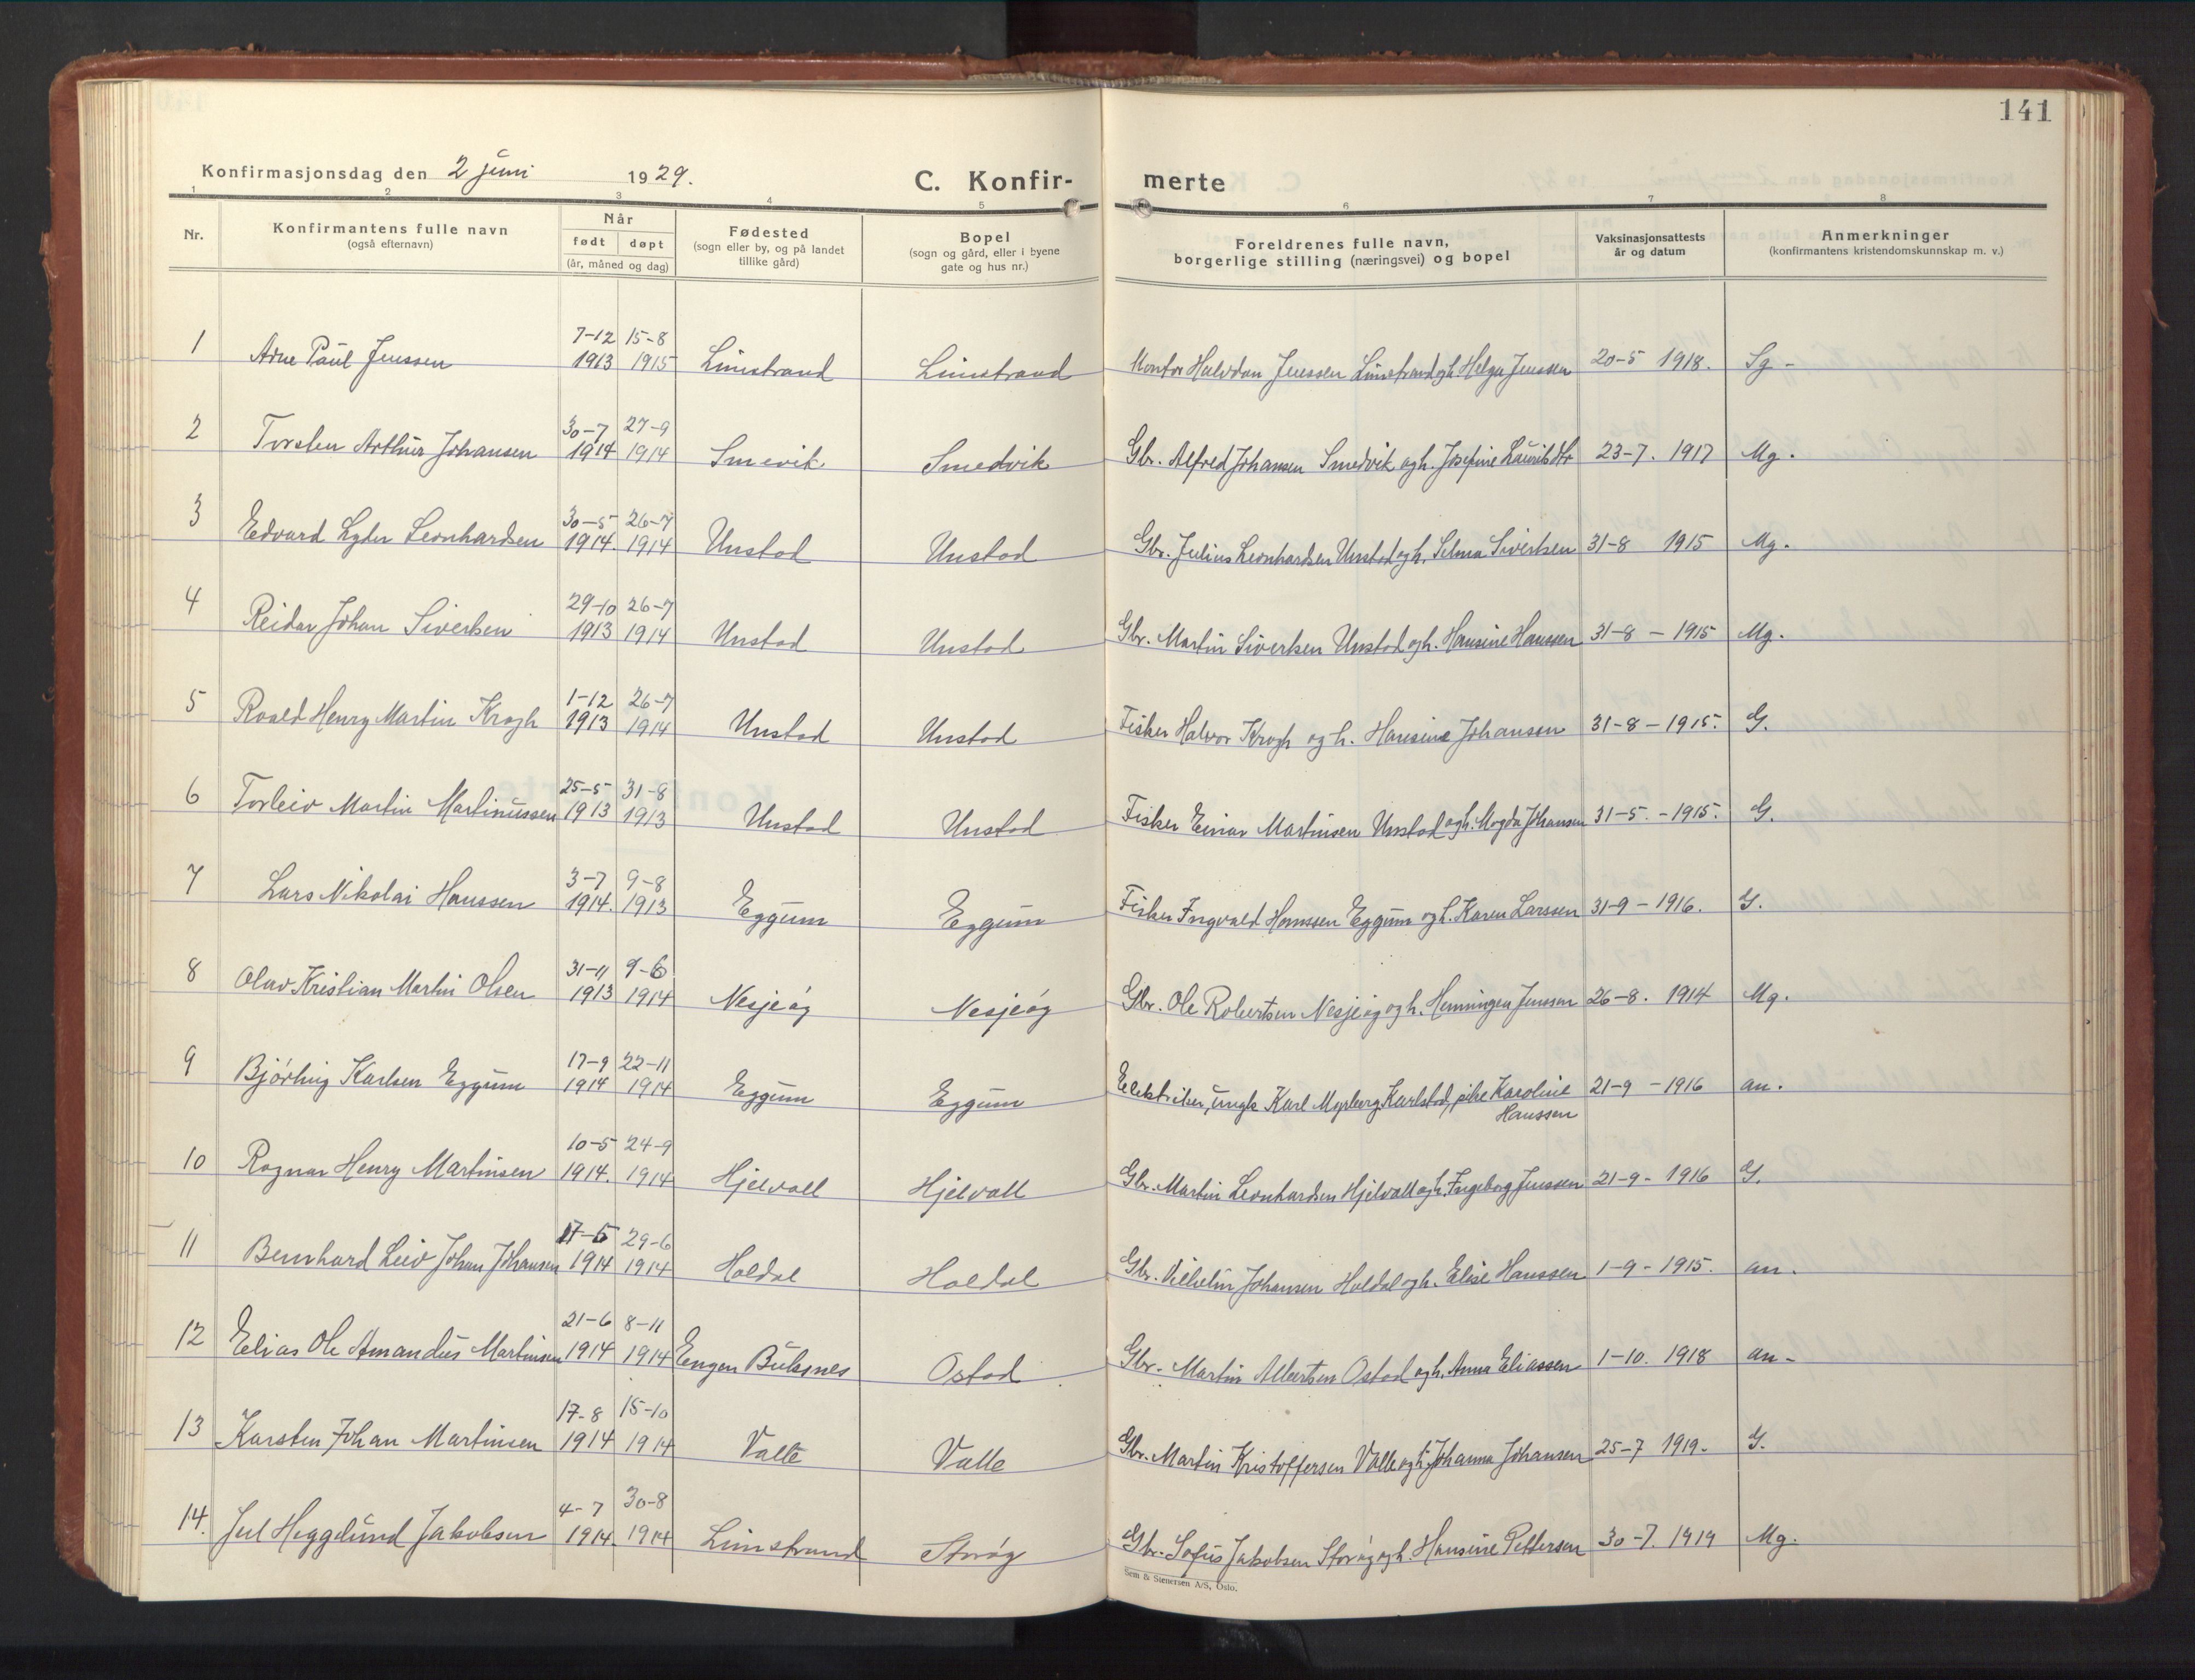 141
Konfirmasjonsdag den 2 juni 1929.
C. Konfir- merte
1 2 3 4 5 6 7 8
Nr.
Konfirmantens fulle navn
(også efternavn)
Når
født døpt
(år, måned og dag)
Fødested
(sogn eller by, og på landet
tillike gård)
Bopel
(sogn og gård, eller i byene
gate og hus nr.)
Foreldrenes fulle navn,
borgerlige stilling (næringsvei) og bopel
Vaksinasjonsattests
år og datum
Anmerkninger
(konfirmantens kristendomskunnskap m. v.)
7-12 15-8
1 Arne Paul Jenssen 1913 1915 Limstrand Limstrand Montør Halvdan Jenssen Limstrand og h. Helga Jenssen 20-5 1918. Sg -
30-7 27-9
2 Torsten Arthur Johansen 1914 1914 Smevik Smedvik Gbr. Alfred Johansen Smedvik og h. Josefine Laurits dtr 23-7. 1917 Mg.
30-5 26-7
3 Edvard Lyder Leonhardsen 1914. 1914 Unstad Unstad Gbr. Julius Leonhardsen Unstad og h. Selma Sivertsen 31-8 1915 Mg.
29-10 26-7
4 Reidar Johan Sivertsen 1913 1914 Unstad Unstad Gbr. Martin Sivertsen Unstad og h. Hansine Hanssen 31-8 - 1915 Mg.
1-12 26-7
5 Roald Henry Martin Krogh 1913 1914 Unstad Unstad Fisker Halvor Krogh og h. Hansine Johansen 31-8 - 1915. G.
25-5 31-8
6 Torleiv Martin Martinussen 1913 1913 Unstad Unstad Fisker Einar Martinsen Unstad og h. Magda Johansen 31-5. - 1915. G.
3-7 9-8
7 Lars Nikolai Hanssen 1914. 1913 Eggum Eggum Fisker Ingvald Hanssen Eggum og h. Karen Larssen 31-9 - 1916. G.
31-11 9-6
8 Olav Kristian Martin Olsen 1913 1914 Nesjeøy Nesjeøy Gbr. Ole Robertsen Nesjeøy og h. Henningea Jenssen 26-8. 1914 Mg.
17-9 22-11
9 Karlsen Eggum 1914 1914 Eggum Eggum Elektriker, ungk. Karl Myrberg Karlstad, pike Karoline
Hanssen 21-9 - 1916 an.
10-5 24-9
10 Ragnar Henry Martinsen 1914. 1914 Hjelvall Hjelvall Gbr. Martin Leonhardsen Hjelvall og h. Ingeborg Jenssen 21-9 - 1916 G.
17-5 29-6
11 Bernhard Leiv Johan Johansen 1914 1914 Holdal Holdal Gbr. Vilhelm Johansen Holdal og h. Elise Hanssen 1-9 - 1915. an.
21-6 8-11
12 Elias Ole Amandus Martinsen 1914 1914 Engen Buksnes Ostad Gbr. Martin Albertsen Ostad og h. Anna Eliassen 1-10. 1918 an-
17-8 15-10
13 Karsten Johan Martinsen 1914 1914 Valle Valle Gbr. Martin Kristoffersen Valle og h. Johanna Johansen 25-7 1919. G.
4-7 30-8
14. Jul Hegglund Jakobsen 1914. 1914 Limstrand Storøy Gbr. Sofus Jakobsen Storøy og h. Hansine Pettersen 30-7. 1919 Mg.
Sem & Stenersen A/S, Oslo.